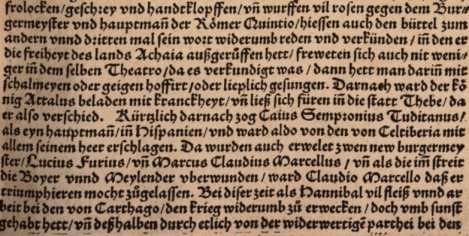 frolocken/geschrey vnd handtklopffen/vñ wurffen vil rosen gegen dem Bur/
germeyster vnd hauptmañ der Römer Quintio/hiessen auch den büttel zum
andern vnnd dritten mal sein wort widerumb reden vnd verkünden/ iñ den er
die freiheyt des lands Achaia außgerüffen hett/ freweten sich auch nit weni/
ger iñ dem selben Theatro/da es verkundigt was / dann hett man dariñ mit
schalmeyen oder geigen hoffirt/oder lieplich gesungen. Darnach ward der kö
nig Attalus beladen mit kranckheyt/vñ ließ sich füren iñ die statt Thebe/da
er also verschied. Kürtzlich darnach zog Caius Sempronius Tuditanus/
als eyn hauptmañ/iñ Hispanien/vnd ward aldo von den von Celtiberia mit
allem seinem heer erschlagen. Da wurden auch erwelet zwen new burgermey
ster/Lucius Furius/vñ Marcus Claudius Marcellus / vñ als die im streit
die Boyer vnnd Meylender vberwunden/ ward Claudio Marcello daß er
triumphieren mocht zůgelassen. Bei diser zeit als Hannibal vil fleiß vnnd ar
beit bei den von Carthago/den krieg widerumb zů erwecken/doch vmb sunst
gehabt hett/vñ deßhalben durch etlich von der widerwertigẽ parthei bei den